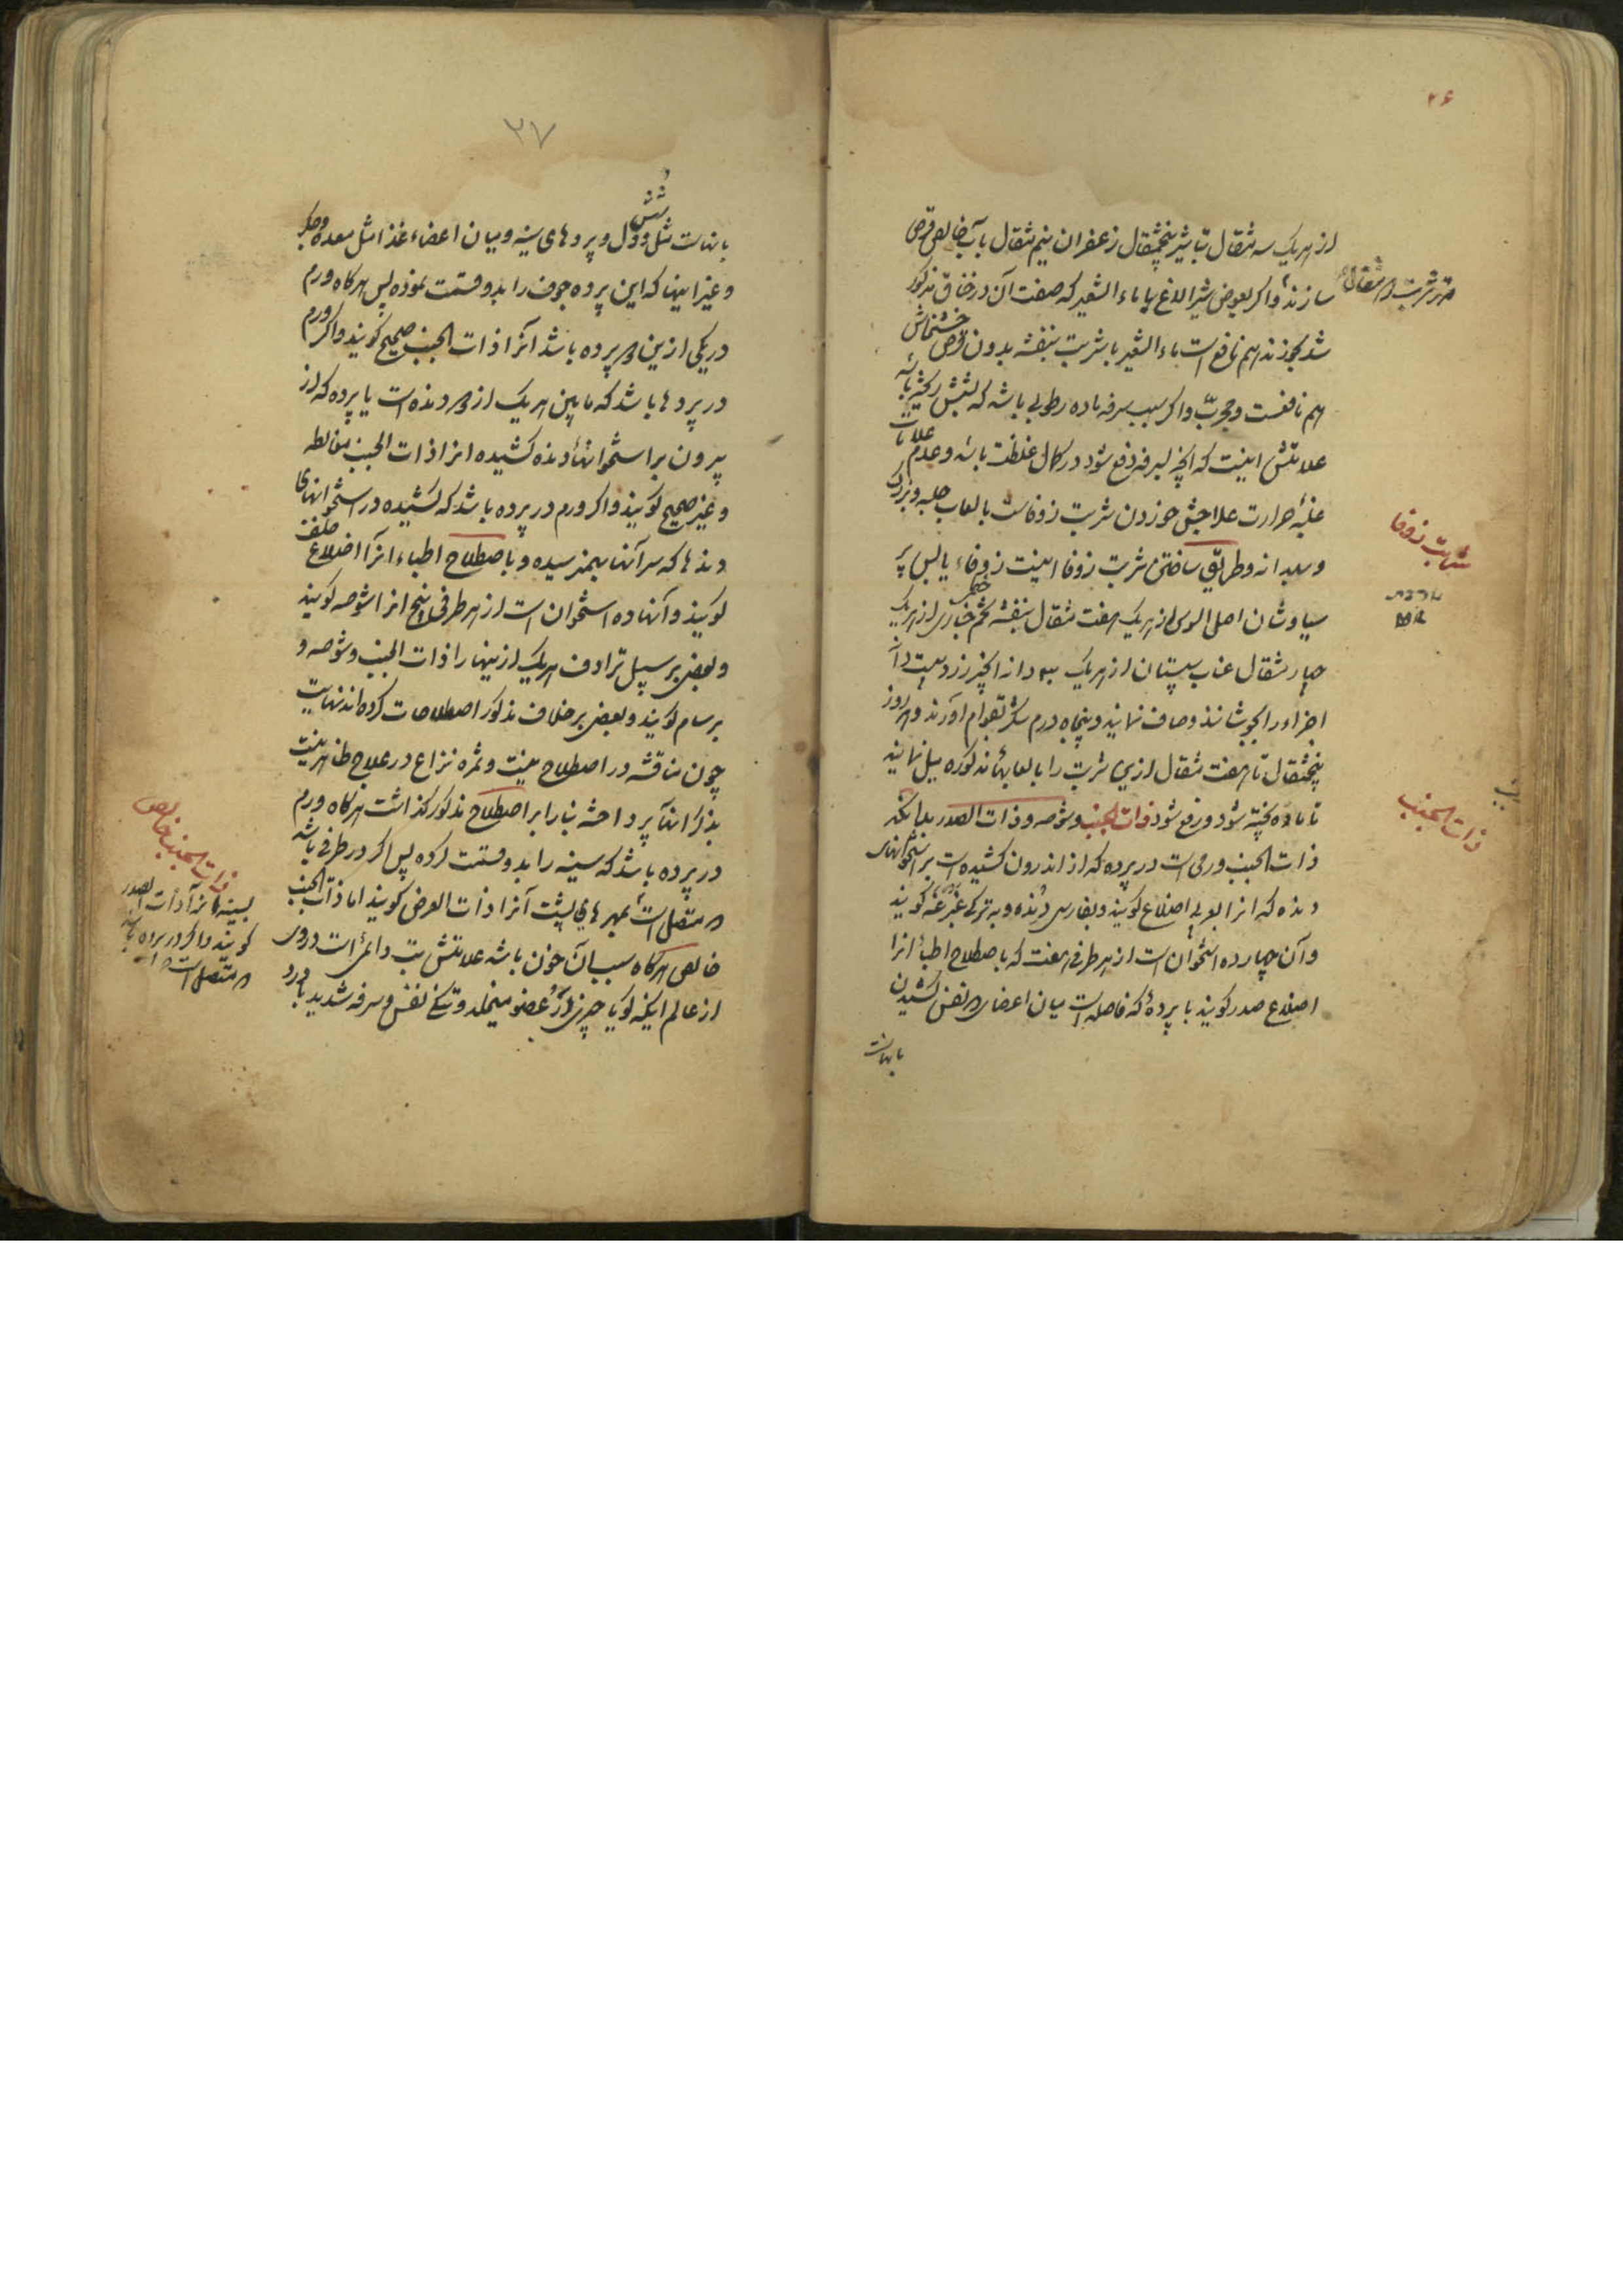 ۲۶
از هریک سه مثقال تباشیر پنجمثقال زعفران نیم مثقال بآب خالص قرص
سازند و اکر بعوض شیر الاغ با ماء الشعیر که صفت آن در خناق مذکور
شد بخورند هم نافع است ماء الشعیر با شربت بنفشه بدون قرص خشخاش
هم نافعست و مجرّب و اکر سبب سرفه ماده رطوبی باشد که بشش ریخته باشد
علامتش اینست که آنچه بسرفه دفع شود در کمال غلظت باشد و عدم علامات
غلبه حرارت علاجش خوردن شربت زوفاست بالعاب حلبه و بزرک
و بهدانه و طریق ساختن شربت زوفا اینست زوفاء یابس پر
سیاوشان اصل السوس از هریک هفت مثقال بنفشه تخم خبازی خطمی از هریک
چهار مثقال عناب سپستان از هریک سه دانه انجیر زرد بیست دانه
اجزاء را بجوشانند و صاف نمایند و پنجاه درم شکر بقوام آورند و هر روز
پنجمثقال تا هفت مثقال ازین شربت را بالعابهای مذکوره میل نمایند
تا ماده پخته شود و رفع شود ذات الجنب و شوصه و ذات الصدر بدانکه
ذات الجنب ورمی است در پرده که از اندرون کشیده است بر استخوانهای
دنده که انرا بعربی اضلاع کویند و بفارسی دنده و به ترکی کویند
و آن چهارده استخوان است از هر طرفی هفت که باصطلاح اطباء انرا
اضلاع صدر کویند یا پردهٔ که فاصله است میان اعضای نفس کشیدن
بانهاست
شربت زوفا
ذات الجنب
۲۷
بانهاست مثل شش و دل و پردهای سینه و میان اعضاء غذا مثل معده و جکر
و غیر اینها که این پرده جوف را بدو قسمت نموده پس هرکاه ورم
در یکی ازین دو پرده باشد آنرا ذات الجنب صحیح کویند و اکر ورم
در پردها باشد که مابین هریک از دو دنده است یا پرده که از
بیرون بر استخوانهای دنده کشیده انرا ذات الجنب مغالطه
و غیر صحیح کویند و اکر ورم در پرده باشد که کشیده در استخوانهای
دندها که سر آنها بهم نرسیده و باصطلاح اطباء انرا اضلاع خلف
کویند و آنها ده استخوان است از هر طرفی پنج انرا شوصه کویند
و بعضی بر سبیل ترادف هریک ازینها را ذات الجنب و شوصه و
برسام کویند و بعضی برخلاف مذکور اصطلاحات کرده‌اند نهایت
چون مناقشه در اصطلاح نیست و ثمره نزاع در علاج ظاهر نیست
بذکر انها نپرداخته بنا را بر اصطلاح مذکور کذاشت هرکاه ورم
در پرده باشد که سینه را بدو قسمت کرده پس اکر در طرفی باشد
که متصل است بمهرهای پشت آنرا ذات العرض کویند اما ذات الجنب
خالص هرکاه سبب آن خون باشد علامتش تب دائمی است و دردی
از عالم اینکه کویا چیزی در عضو میخلد و تنکی نفس و سرفه شدید با درد
ذات الجنب خالص